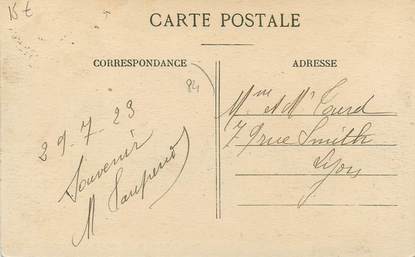 15 €
CARTE POSTALE
CORRESPONDANCE
ADRESSE
84
29-7-23
Souvenir
M
Mme et Mr
79 rue Smith
Lyon